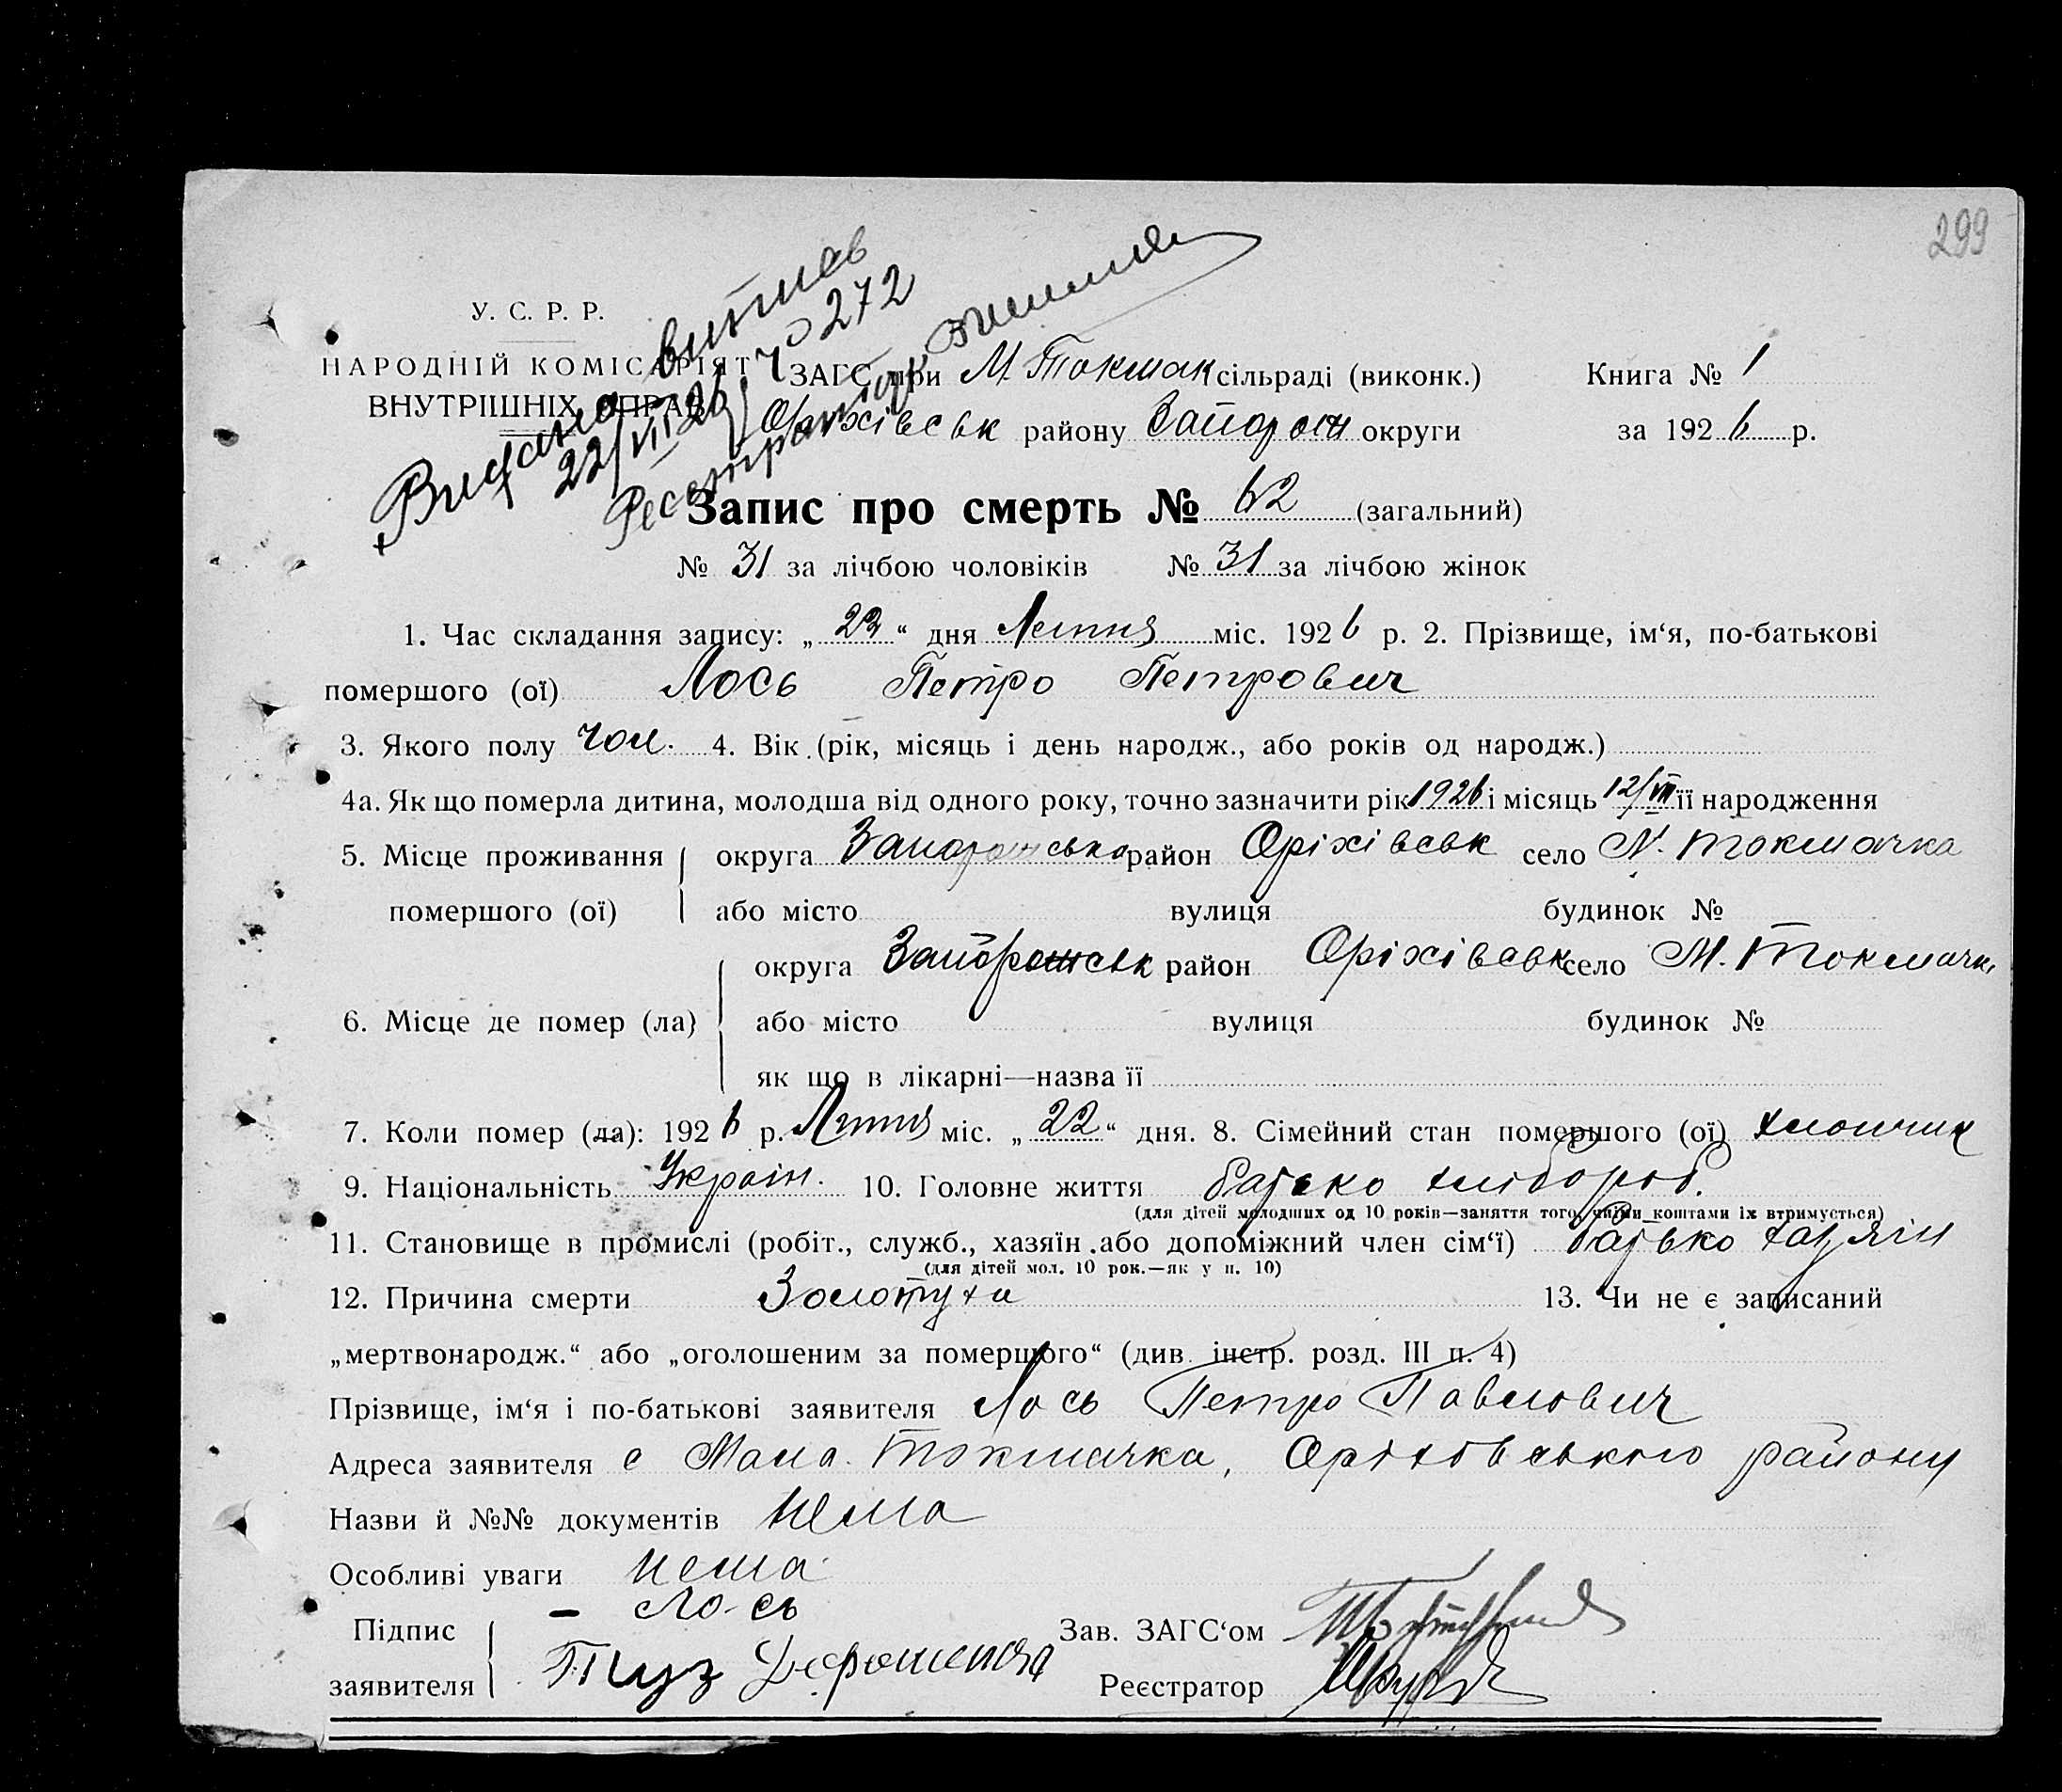 299
У. С. Р. Р.
НАРОДНІЙ КОМІСАРІЯТ
ВНУТРІШНІХ СПРАВ
Видано витись
22/VII 26 ч 272
Реєстратор
ЗАГС при М. Токмак сільраді (виконк.) Книга № 1
Оріхівськ району Запоріж округи за 1926 р.
Запис про смерть № 62 (загальний)
№ 31 за лічбою чоловіків № 31 за лічбою жінок
1. Час складання запису: „22“ дня Липня міс. 1926 р. 2. Прізвище, ім‘я, по-батькові
помершого (ої) Лось Петро Петрович
3. Якого полу чол. 4. Вік (рік, місяць і день народж., або років од народж.)
4а. Як що померла дитина, молодша від одного року, точно зазначити рік 1926 і місяць 12/VII її народження
5. Місце проживання округа Запорожсько район Оріхівськ село М. Токмачка
помершого (ої) або місто вулиця будинок №
округа Запорожськ район Оріхівськ село М. Токмачк
6. Місце де помер (ла) або місто вулиця будинок №
як що в лікарні—назва її
7. Коли помер (ла): 1926 р. Липня міс. „22“ дня. 8. Сімейний стан помершого (ої) хлопчик
9. Національність Україн. 10. Головне життя батько хлібороб.
(для дітей молодших од 10 років—заняття того, чиїми коштами їх втримується)
11. Становище в промислі (робіт., служб., хазяїн або допоміжний член сім‘ї) батько хазяїн
(для дітей мол. 10 рок.—як у п. 10)
12. Причина смерти Золотуха 13. Чи не є записаний
„мертвонародж.“ або „оголошеним за помершого“ (див. інстр. розд. III п. 4)
Прізвище, ім‘я і по-батькові заявителя Лось Петро Павлович
Адреса заявителя с Мала Токмачка, Оріхівського району
Назви й №№ документів нема
Особливі уваги нема
Підпис – Лось Зав. ЗАГС‘ом
заявителя Туз Реєстратор